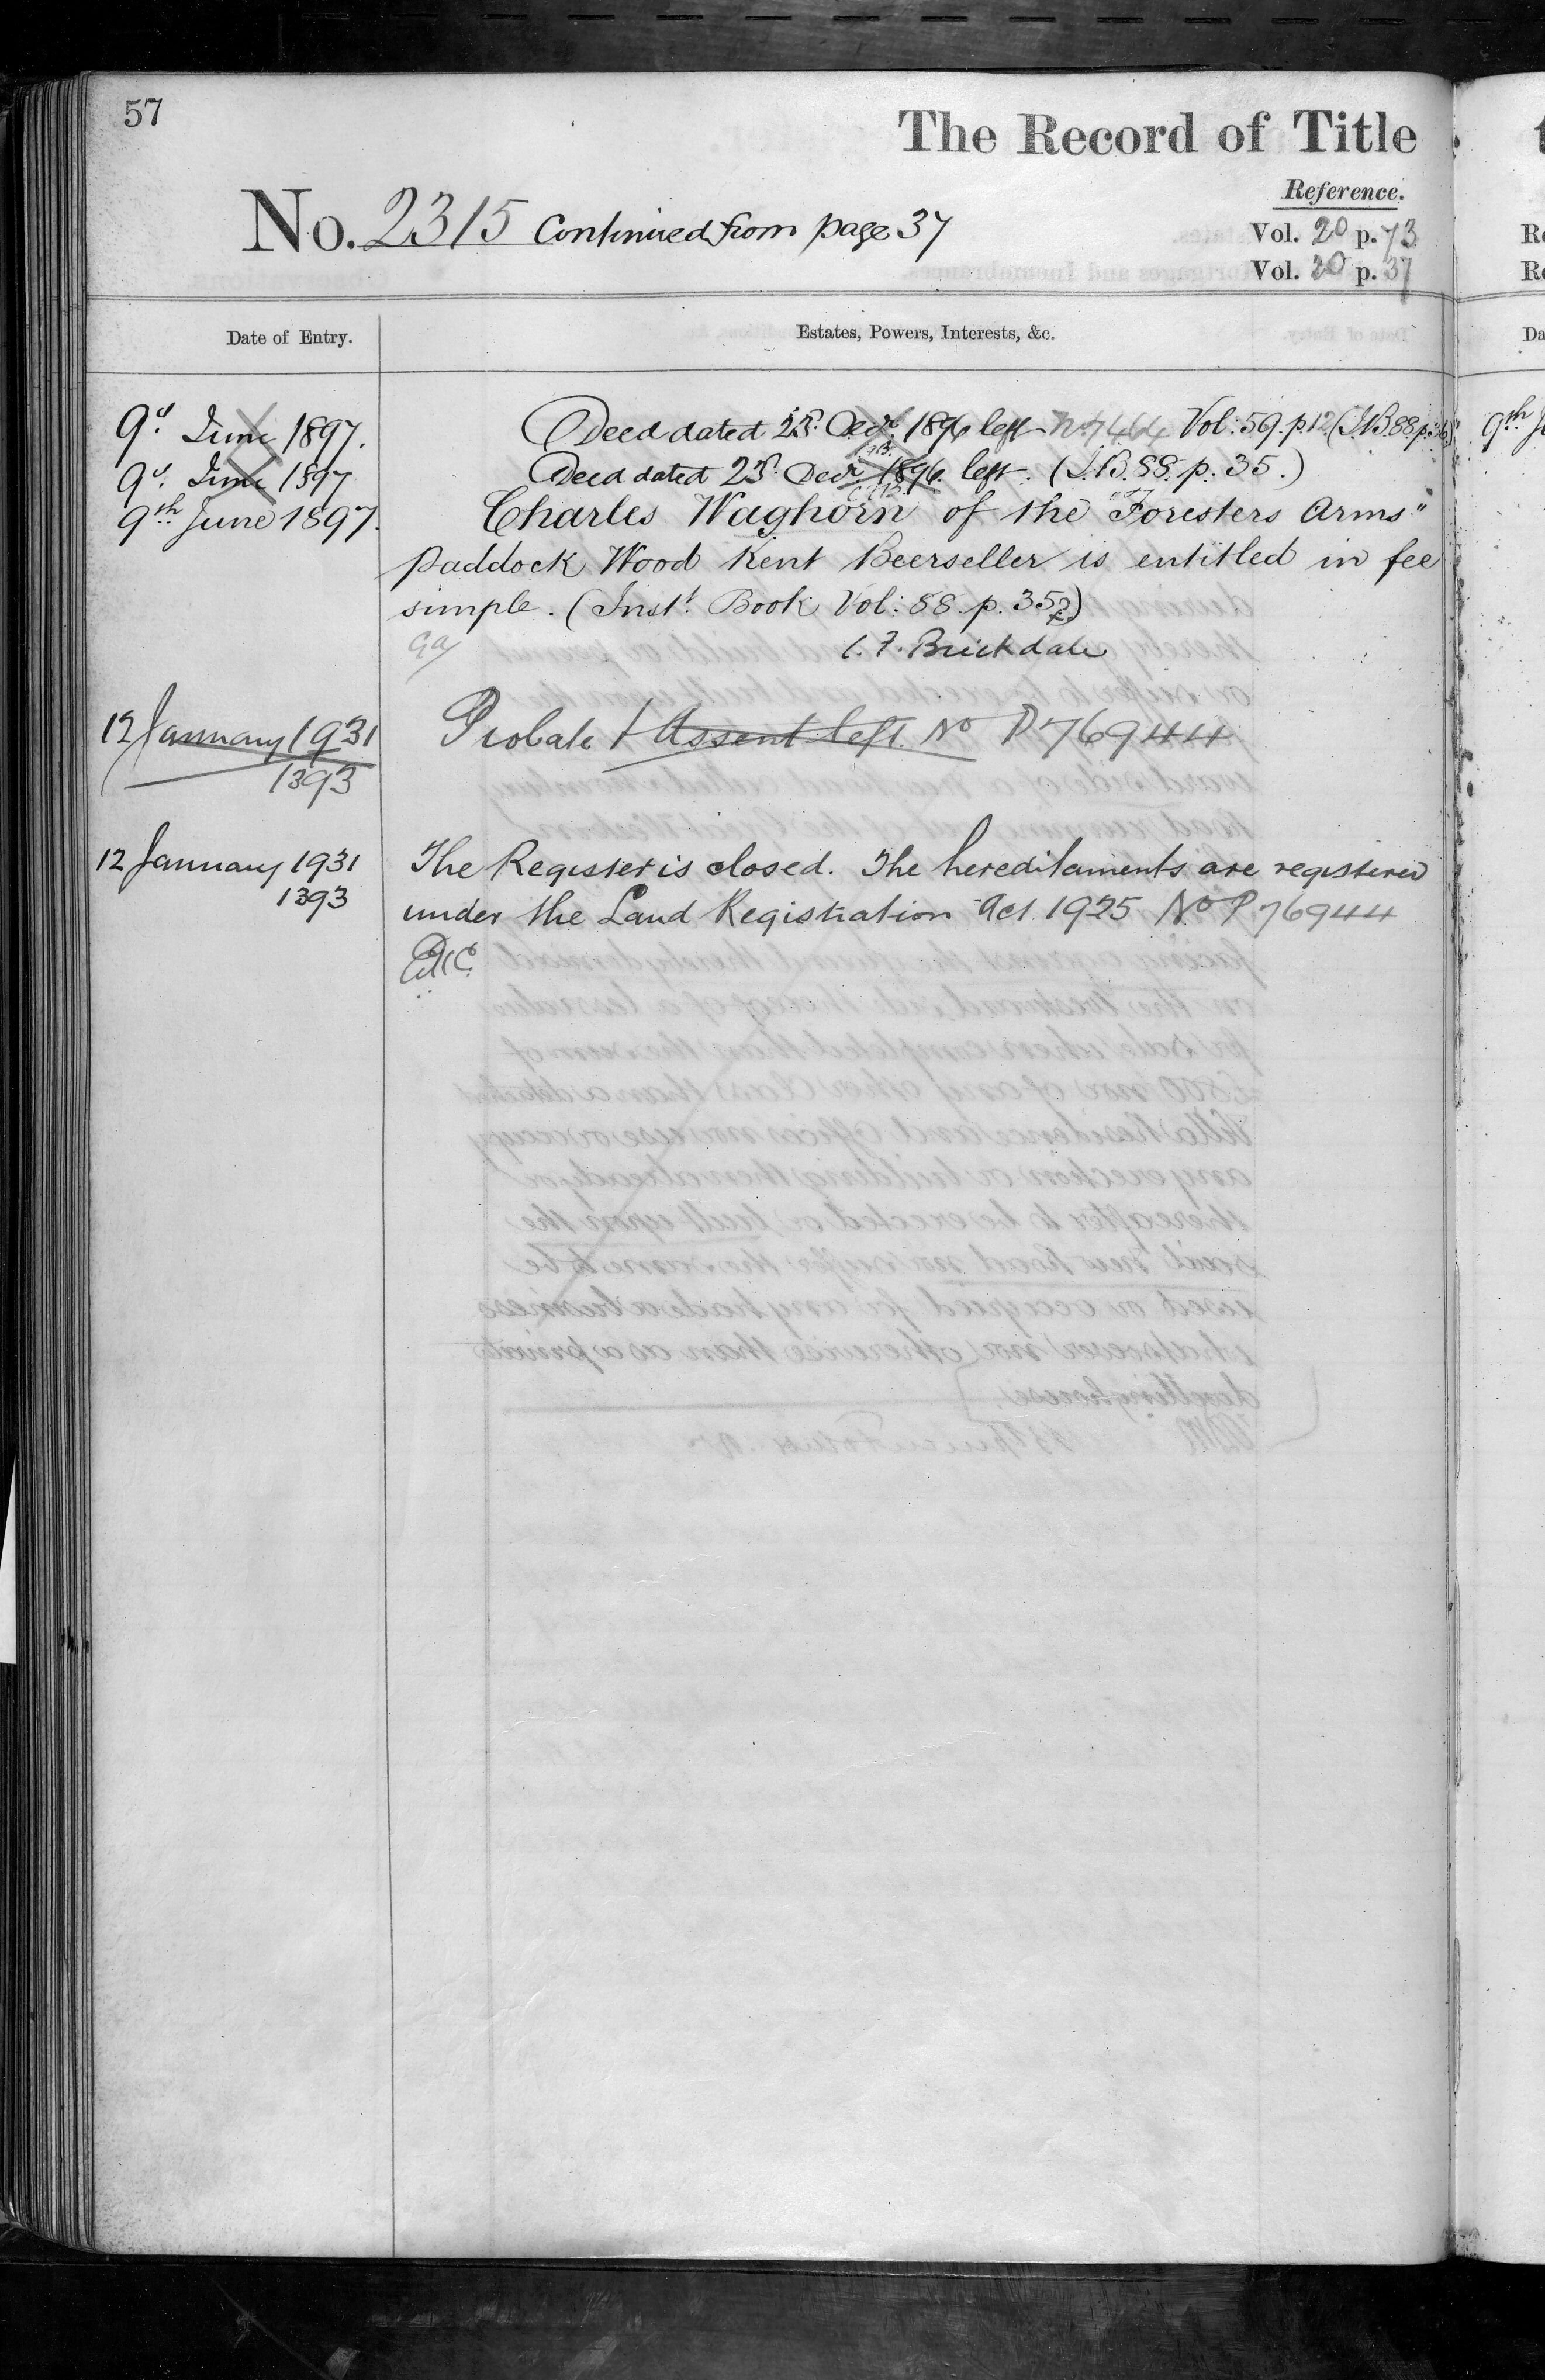 57
The Record of Title
Reference.
No. 2315 Continued from page 37
Vol. 20 p. 73
Vol. 20 p. 37
Date of Entry.
Estates, Powers, Interests, &c.
9th June 1897. Deed dated 23rd Decr. 1896 left No 7464 Vol: 59. p. 12 (I.B. 88. p. 36)
9th June 1897 Deed dated 23rd Decr 1896. left. (I.B. 88. p. 35.)
9th June 1897. Charles Waghorn of the "Foresters Arms"
Paddock Wood Kent Beerseller is entitled in fee
simple. (Inst. Book Vol: 88. p. 35)
C. F. Brickdale
12 January 1931 Probate & Assent left. No P 76944
1393
12 January 1931 The Register is closed. The hereditaments are registered
1393 under the Land Registration Act 1925 No P 76944